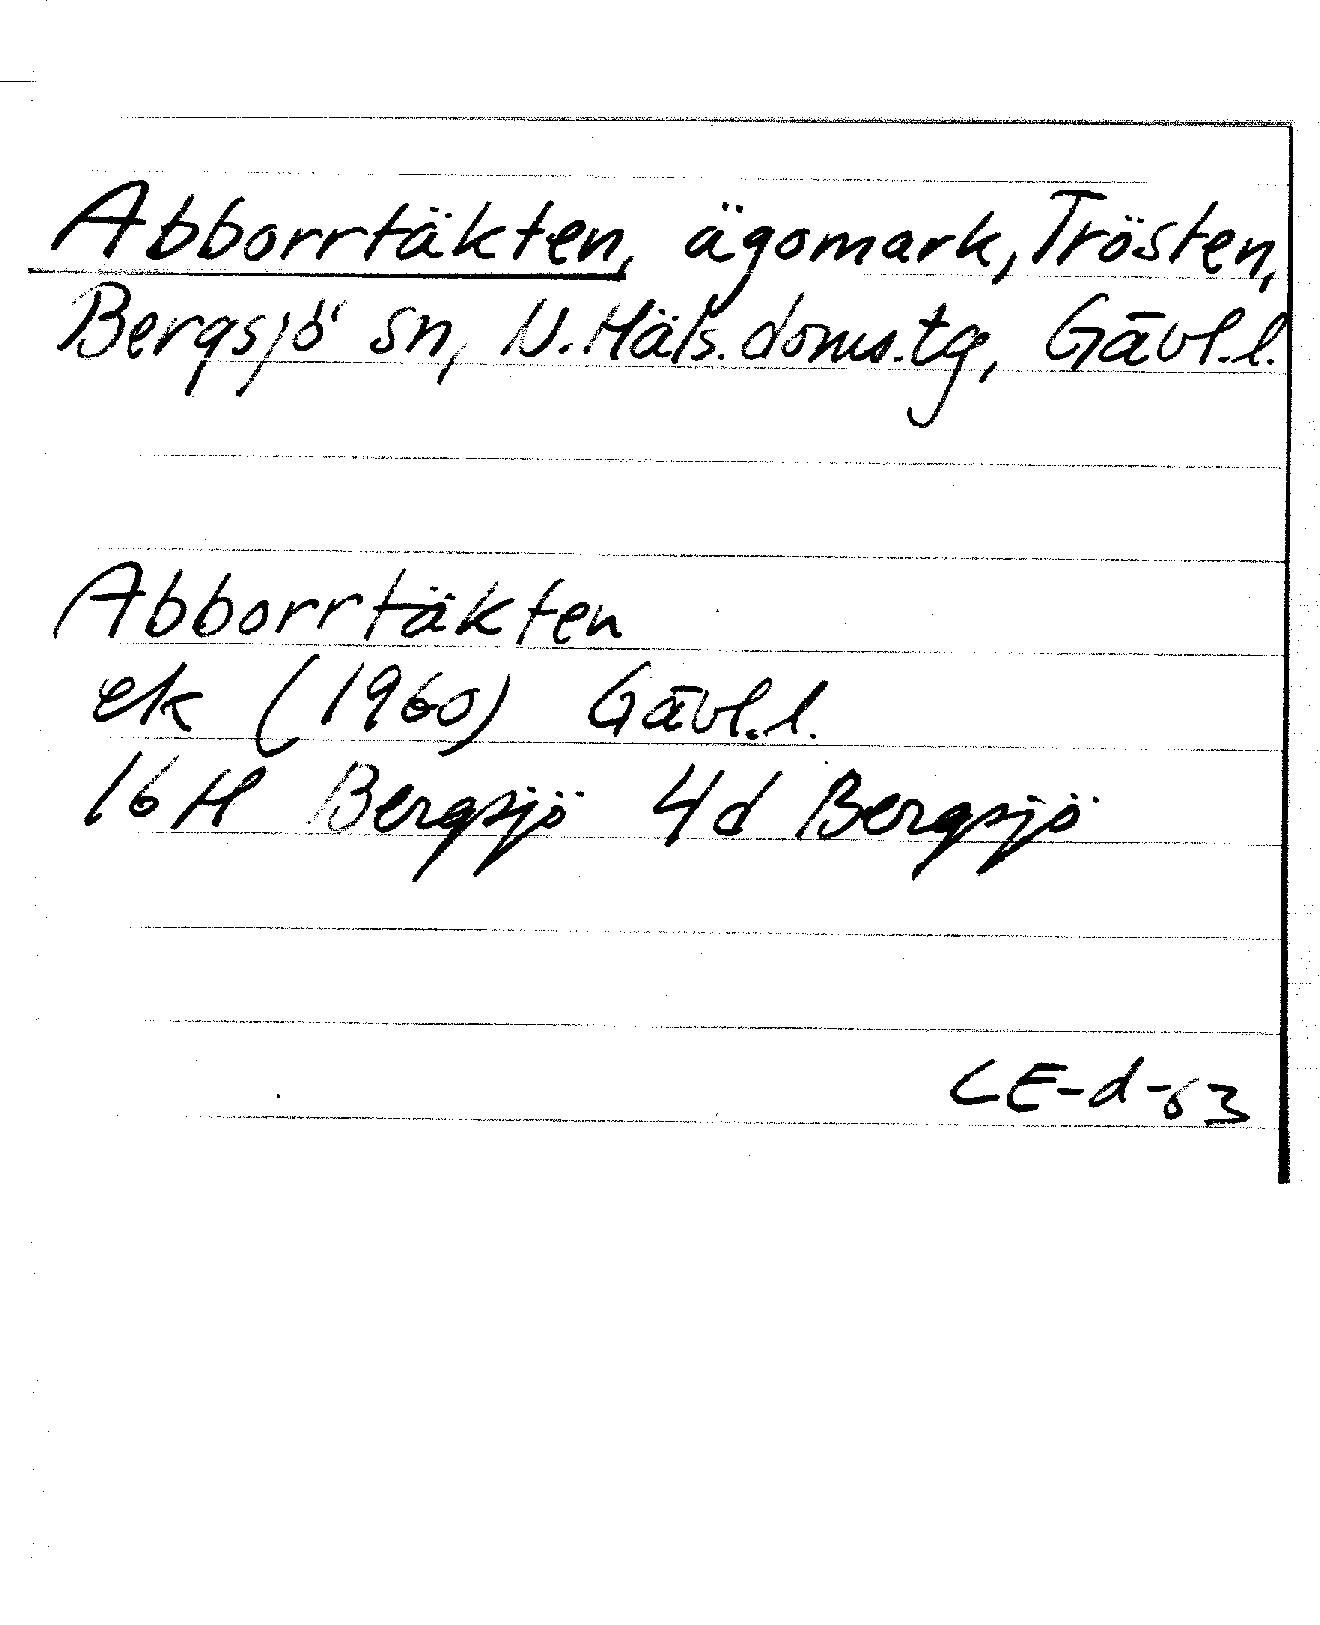 Abborrtäkten, ägomark, Trösten,
Bergsjö sn, N.Häls.doms.tg, Gävl.l.
Abborrtäkten
ek (1960) Gävl.l.
16H Bergsjö 4d Bergsjö
CE-d-63